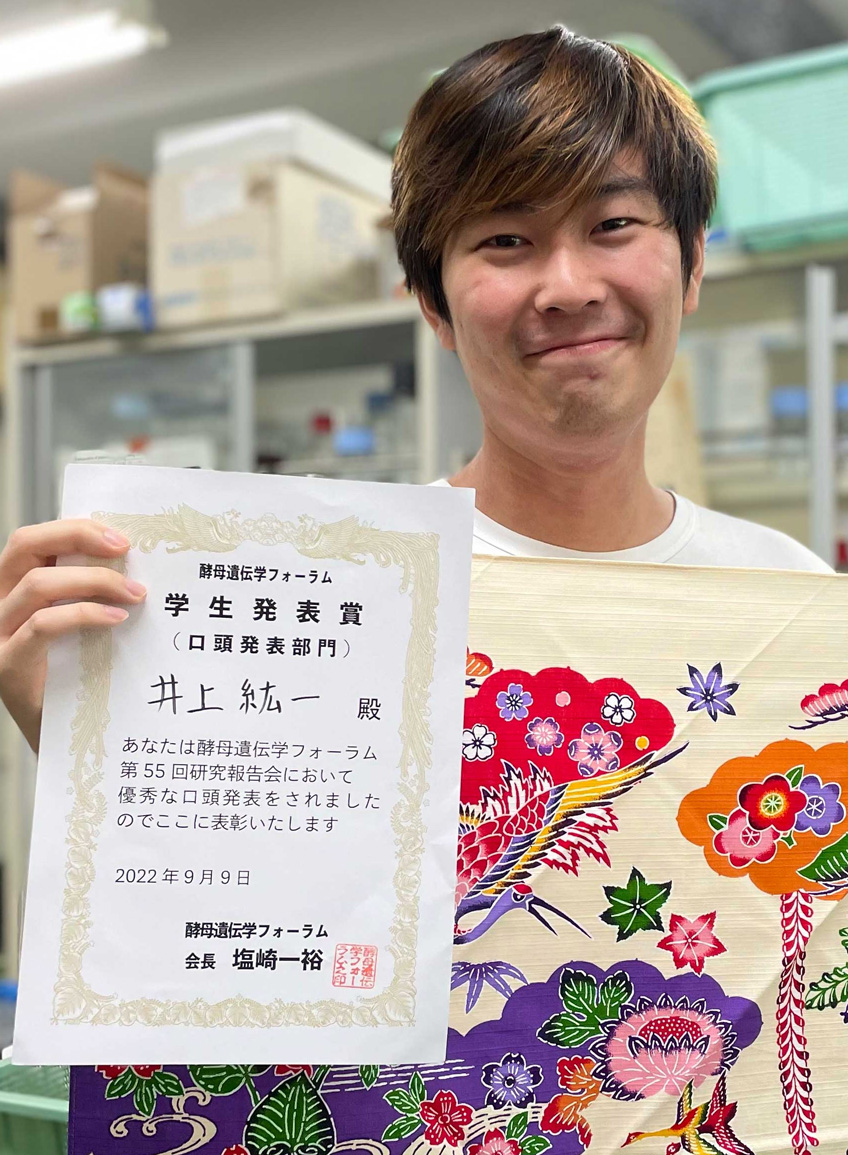 酵母遺伝学フォーラム
学生発表賞
（口頭発表部門）
井上 紘一 殿
あなたは酵母遺伝学フォーラム
第 55 回研究報告会において
優秀な口頭発表をされました
のでここに表彰いたします
2022 年 9 月 9 日
酵母遺伝学フォーラム
会長 塩崎一裕